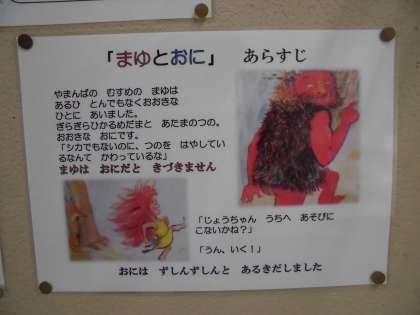 「まゆとおに」　あらすじ
やまんばの　むすめの　まゆは
あるひ　とんでもなくおおきな
ひとに　あいました。
ぎらぎらひかるめだまと　あたまのつの。
おおきな　おにです。
「シカでもないのに、つのを　はやしてい
るなんて　かわっているな」
まゆは　おにだと　きづきません
「じょうちゃん　うちへ　あそびに
こないかね？」
「うん、いく！」
おには　ずしんずしんと　あるきだしました